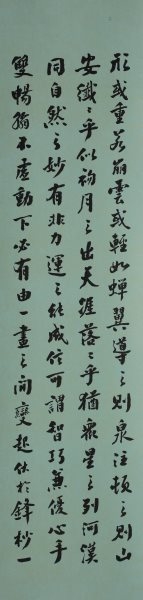 形或重若崩雲或輕如蟬翼導之則泉注頓之則山
安纖〻乎似初月之出天涯落〻乎猶眾星之列河漢
同自然之妙有非力運之能成信可謂智巧兼優心手
雙暢翰不虛動下必有由一畫之間變起伏於鋒杪一